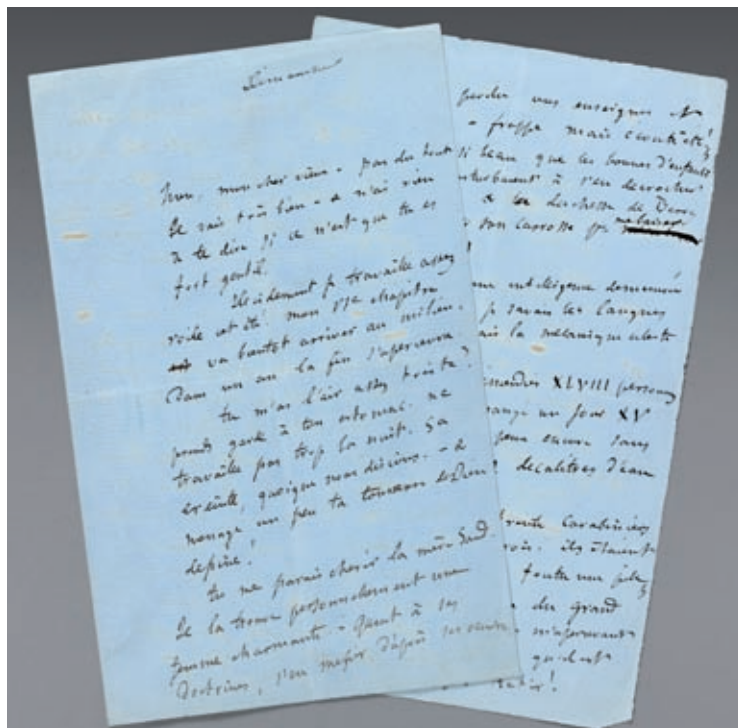 Dimanche
Non, mon cher vieux – pas du tout
Je vais très bien – & n'ai rien
à te dire si ce n'est que tu es
fort gentil.
Décidement je travaille assez
roide cet été. mon 11e chapitre
va bientot arriver au milieu.
Dans un an la fin s'apercevra.
tu m'as l'air assez triste?
prends garde à ton estomac. ne
travaille pas trop la nuit. ça
éreinte, quoique nous disions. – &
menage un peu ta
depine!
tu me parais cherir la mère Sand.
Je la trouve personnellement une
femme charmante. – quant à ses
doctrines, s'en mefier d'après ses œuvres
perdu mes enseignes et
– frappe mais ecoute
si beau que les bonnes d'enfants
à s'en decrocher
& la duchesse de
son carrosse pr me baiser
une intelligence demesurée
je savais les langues
la mécanique celeste
XLVIII personnes
mangé un jour XV
peux encore sans
decalitres d'eau
trente Carabiniers
ils étaient
foutu une pile
du grand
m'apercevant
qu'elle
!